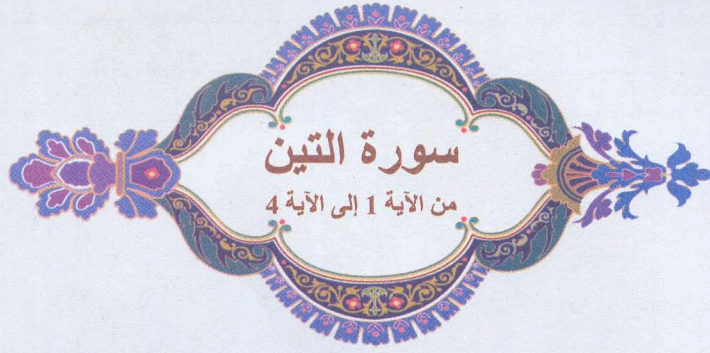 سورة التين
من الآية 1 إلى الآية 4